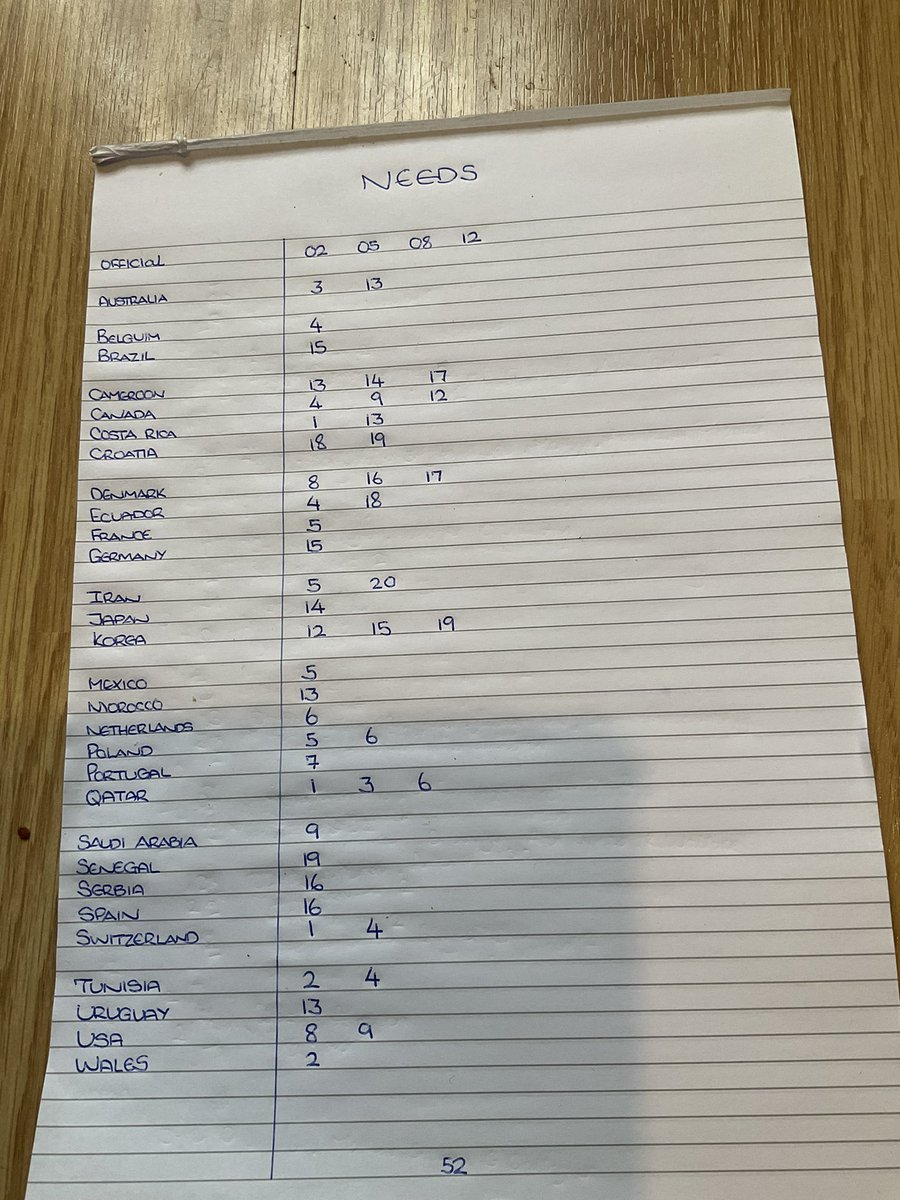 NEEDS
OFFICIAL 02 05 08 12
AUSTRALIA 3 13
BELGUIM 4
BRAZIL 15
CAMEROON 13 14 17
CANADA 4 9 12
COSTA RICA 1 13
CROATIA 18 19
DENMARK 8 16 17
ECUADOR 4 18
FRANCE 5
GERMANY 15
IRAN 5 20
JAPAN 14
KOREA 12 15 19
MEXICO 5
MOROCCO 13
NETHERLANDS 6
POLAND 5 6
PORTUGAL 7
QATAR 1 3 6
SAUDI ARABIA 9
SENEGAL 19
SERBIA 16
SPAIN 16
SWITZERLAND 1 4
TUNISIA 2 4
URUGUAY 13
USA 8 9
WALES 2
52